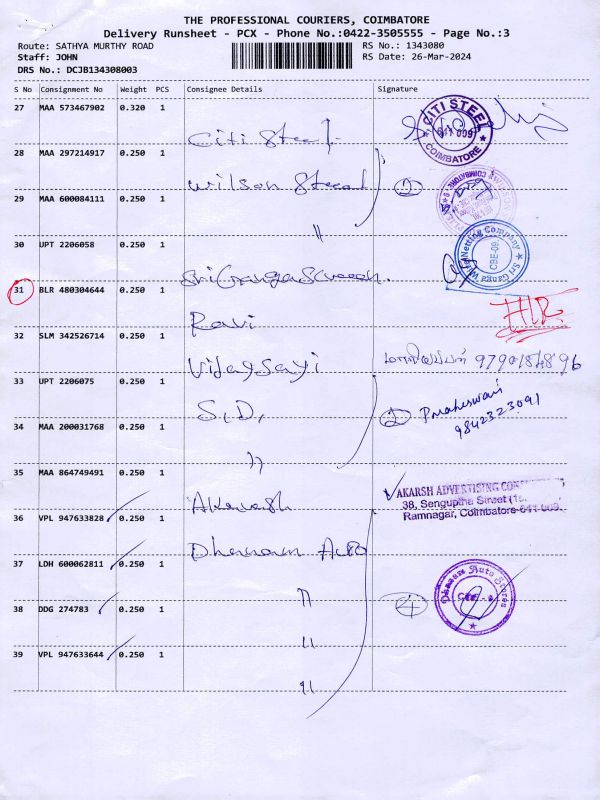 THE PROFESSIONAL COURIERS, COIMBATORE
Delivery Runsheet - PCX - Phone No.:0422-3505555 - Page No.:3
Route: SATHYA MURTHY ROAD
RS No.: 1343080
Staff: JOHN
RS Date: 26-Mar-2024
DRS No.: DCJB134308003
S No Consignment No Weight PCS Consignee Details Signature
27 MAA 573467902 0.320 1
Citi Steel
CITI STEEL
641 009
COIMBATORE
28 MAA 297214917 0.250 1
Wilson
2
29 MAA 600084111 0.250 1
"
30 UPT 2206058 0.250 1
Sri Ganga
Sri Ganga Wire Netting Company
CBE-09
31 BLR 480304644 0.250 1
Ravi
32 SLM 342526714 0.250 1
Vijaysayi
9790184896
33 UPT 2206075 0.250 1
S.D.
2 P maheswari
9842323091
34 MAA 200031768 0.250 1
"
35 MAA 864749491 0.250 1
Akarash
AKARSH ADVERTISING
38, Senguptha Street
Ramnagar, Coimbatore-641 009.
36 VPL 947633828 0.250 1
Dhanam Auto
37 LDH 600062811 0.250 1
"
Dhanam Auto Stores
38 DDG 274783 0.250 1
"
4
39 VPL 947633644 0.250 1
"